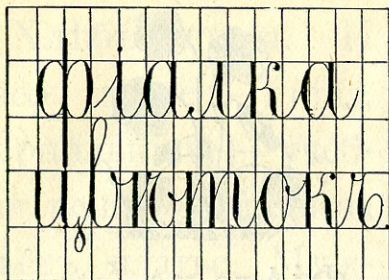 фіалка
цвѣтокъ.